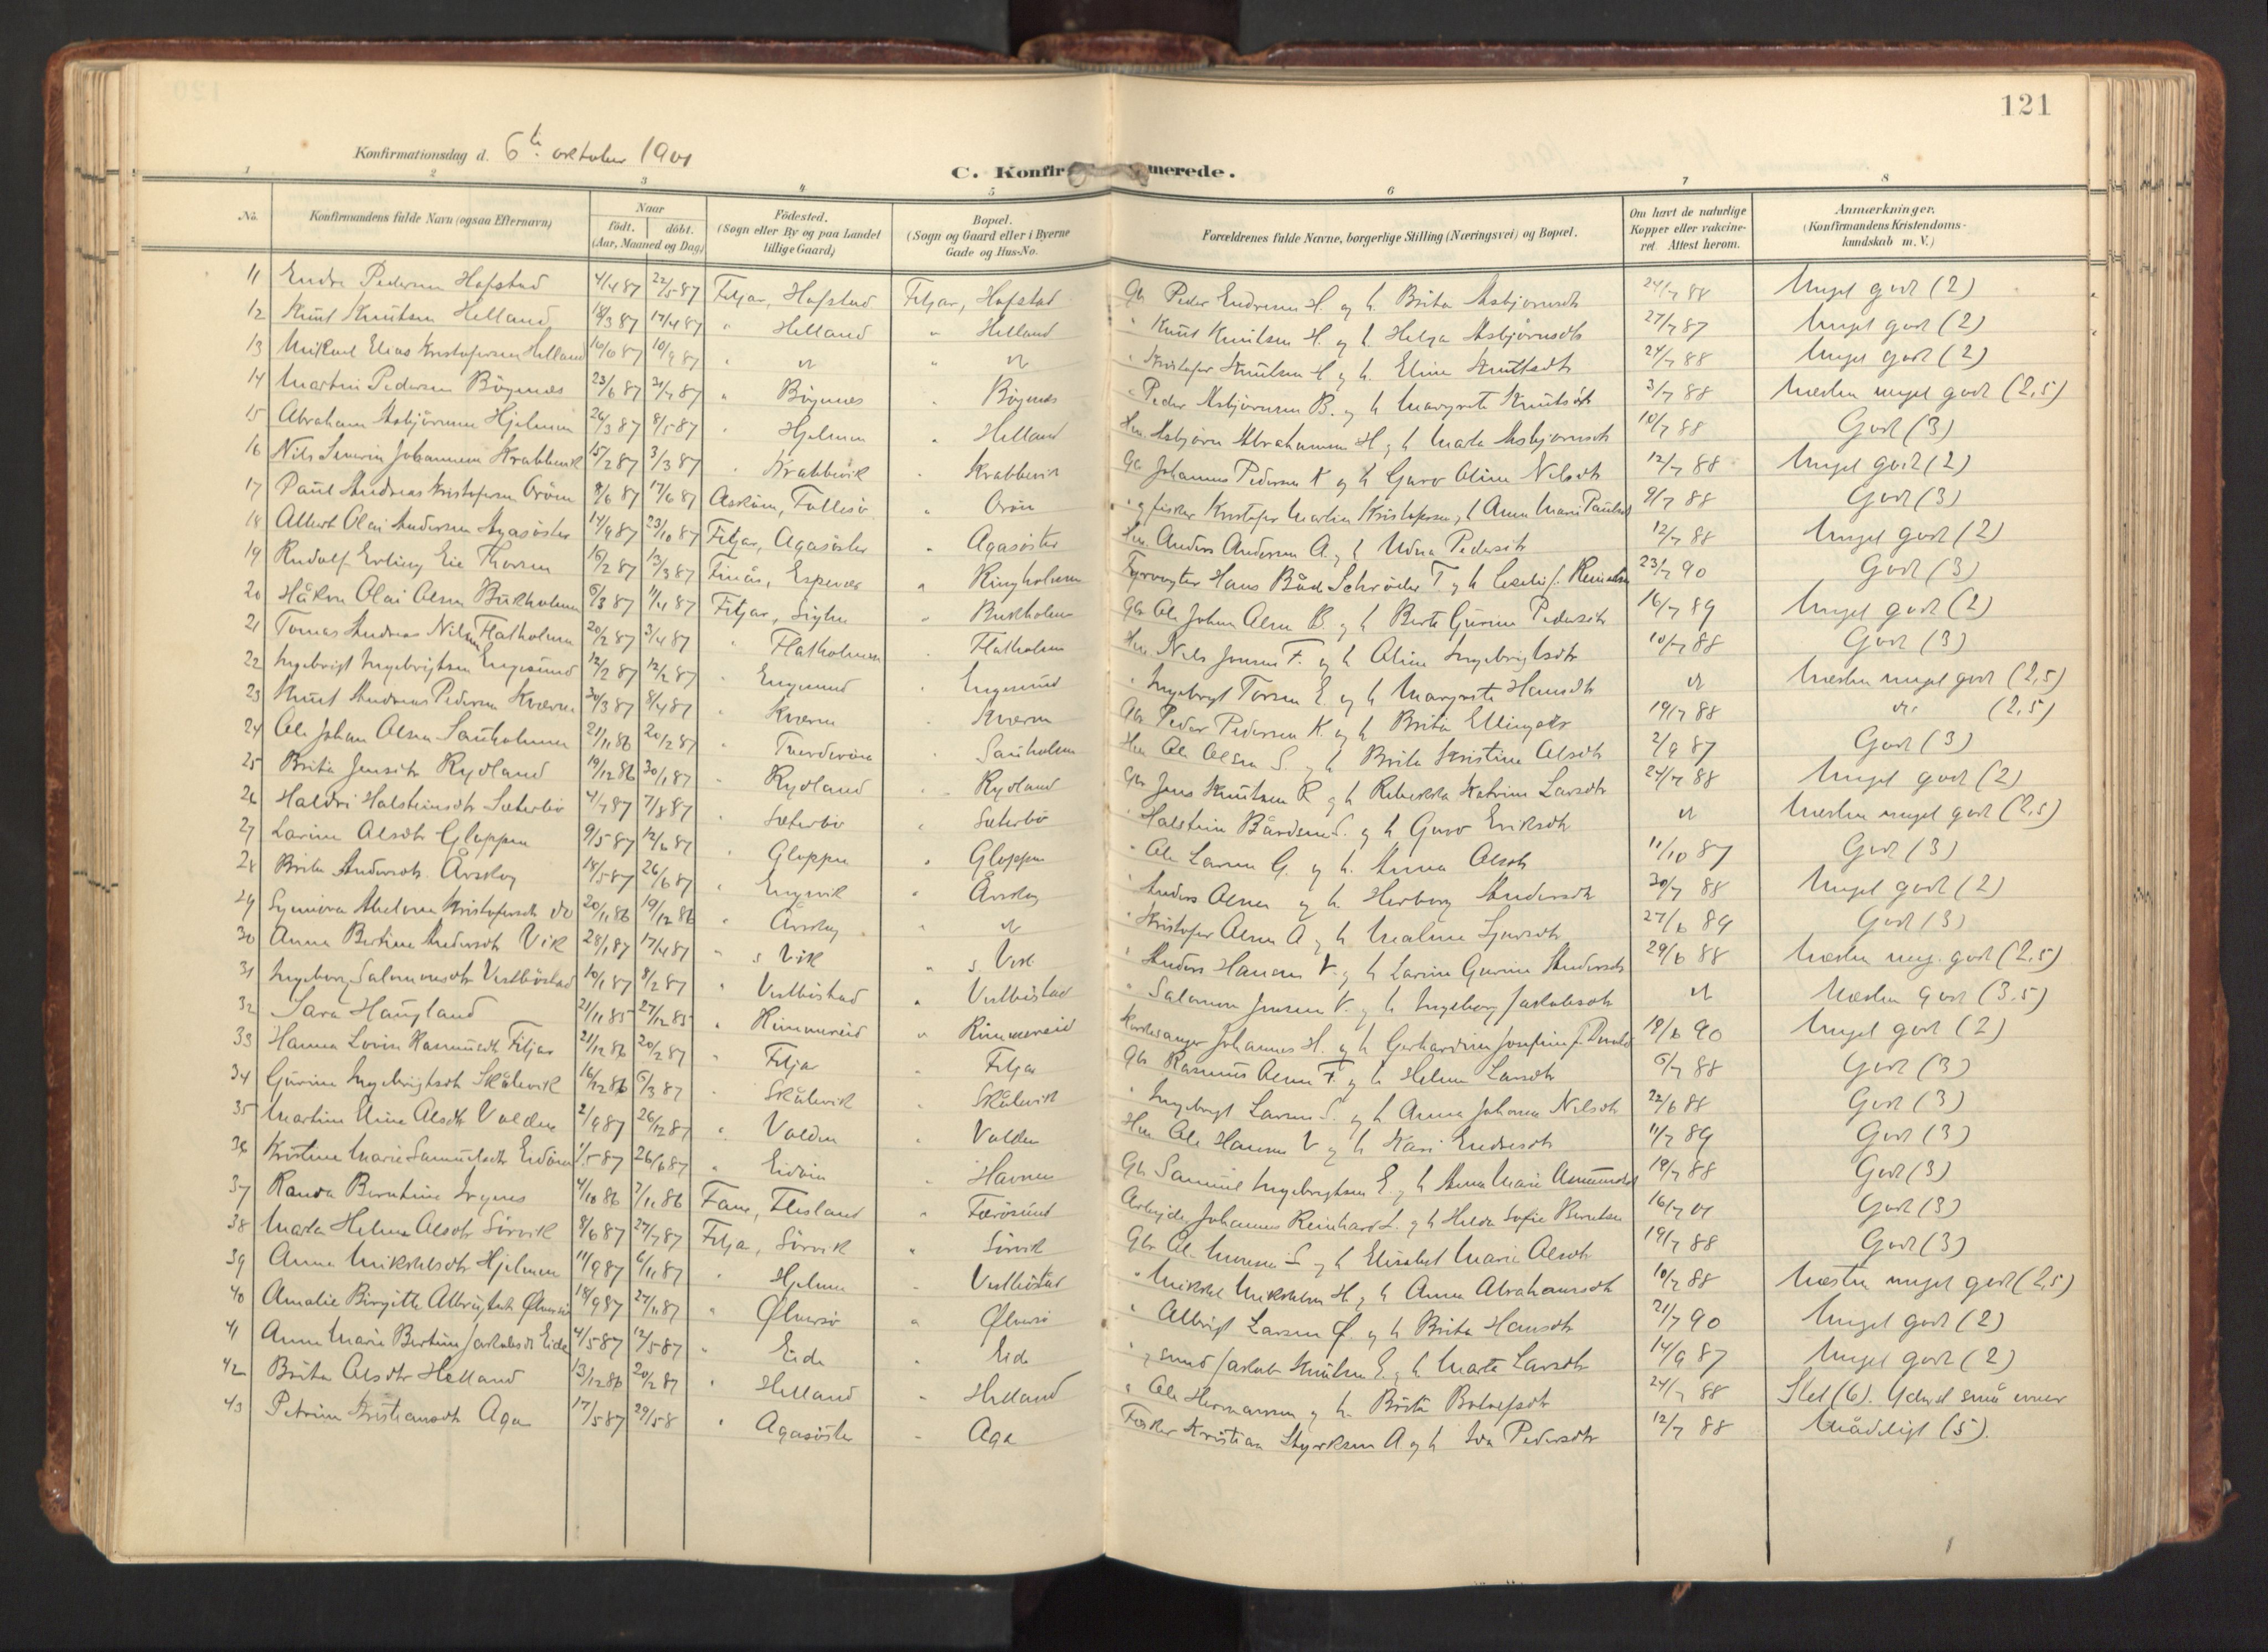 121
Konfirmationsdag d. 6te oktober 1901
C. Konfir merede.
1 2 3 4 5 6 7 8
No. Konfirmandens fulde Navn (ogsaa Efternavn) Naar födt. döbt. (Aar, Maaned og Dag) Födested. (Sogn eller By og paa Landet tillige Gaard) Bopæl. (Sogn og Gaard eller i Byerne Gade og Hus-No. Forældrenes fulde Navne, borgerlige Stilling (Næringsvei) og Bopæl. Om havt de naturlige Kopper eller vaccineret. Attest herom. Anmærkninger. (Konfirmandens Kristendomskundskab m. V.)
11 Endre Pedersen Hofstad 4/4 87 22/5 87 Fitjar, Hofstad Fitjar, Hofstad Gbr Peder Endresen H. og h. Brita Asbjørnsdtr 24/7 88 Meget godt (2)
12 Knut Knutsen Helland 18/3 87 17/4 87 " Helland " Helland " Knut Knutsen H. og h. Helga Asbjörnsdtr 27/7 87 Meget godt (2)
13 Mikael Elias Kristofersen Helland 10/9 87 " do " do " Kristofer Knutsen H. og h. Eline Knutsdtr 24/7 88 Meget godt (2)
14 Martin Pedersen Bögenes 23/6 87 31/7 87 " Bögenes " Bögenes " Peder Asbjörnsen B. og h Margrete Knutsdtr 3/7 88 Næsten meget godt (2,5)
15 Abraham Asbjörnsen Hjelmen 26/3 87 8/5 87 " Hjelmen " Helland Hm. Asbjörn Abrahamsen H. og h Marta Asbjörnsdtr 10/7 88 Godt (3)
16 Nils Severin Johannesen Krabbevik 15/2 87 3/3 87 " Krabbevik " Krabbevik Gbr Johannes Pedersen K og h Guro Oline Nilsdtr 12/7 88 Meget godt (2)
17 Paul Andreas Kristofersen Oröen 9/6 87 17/6 87 Asköen, Follesö " Oröen " og fisker Kristofer Martin Kristofersen og h Anna Marie Paulsdtr 9/7 88 Godt (3)
18 Albert Olai Andersen Agasöster 14/9 87 23/10 87 Fitjar, Agasöster " Agasöster Hm. Anders Andersen A. og h Pedersdtr 12/7 88 Meget godt (2)
19 Rudolf Erling Thorsen 16/2 87 13/3 87 Finås, Espevær " Ringholmen Fyrvogter Hans Båd Schröder T og h 23/7 90 Godt (3)
20 Håkon Olai Olsen Bukholmen 6/3 87 11/4 87 Fitjar, " Bukholmen Gbr Ole Johan Olsen B. og h Berte Gurine Pedersdtr 16/7 89 Meget godt (2)
21 Tomas Andreas Nilsen Flatholmen 20/2 87 3/4 87 " Flatholmen " Flatholmen Hm. Nils Jonsen F. og h Oline Ingebrigtsdtr 10/7 88 Godt (3)
22 Ingebrigt Ingebrigtsen Engesund 12/2 87 " Engesund " Engesund " Ingebrigt Torsen E. og h Margrete Hansdtr do Næsten meget godt (2,5)
23 Knut Andreas Pedersen Kværne 30/3 87 8/4 87 " Kværne " Kværne Gbr Peder Pedersen K. og h Brita Ellingsdtr 19/7 88 do (2,5)
24 Ole Johan Olsen Sauholmen 21/11 86 20/2 87 " " Sauholmen Hm Ole Olsen S. og h Brita Kristine Olsdtr 2/9 87 Godt (3)
25 Brita Jensdtr Rydland 19/12 86 30/1 87 " Rydland " Rydland Gbr Jens Knutsen R og h Rebekka Katrine Larsdtr 24/7 88 Meget godt (2)
26 Haldri Halsteinsdtr Sæterbö 4/7 87 7/8 87 " Sæterbö " Sæterbö " Halstein Bårdsen S. og h Guro Eriksdtr do Næsten meget godt (2,5)
27 Larine Olsdtr Gloppen 9/5 87 12/6 87 " Gloppen " Gloppen " Ole Larsen G. og h. Anna Olsdtr 11/10 87 Godt (3)
28 Brita Andersdtr. Årskog 18/5 87 26/6 87 " Engevik " Årskog " Anders Olsen og h. Herborg Andersdtr 30/7 88 Meget godt (2)
29 Synnöva Kristofersdtr do 20/11 86 19/12 86 " Årskog " do " Kristofer Olsen A og h Malene Sjursdtr 27/6 89 Godt (3)
30 Anna Bertine Andersdtr Vik 28/1 87 17/4 87 " s Vik " s. Vik " Anders Hansen V. og h Larine Gurine Andersdtr 29/6 88 Næsten meg. godt (2,5)
31 Ingeborg Salomonsdtr Vestböstad 10/1 87 8/2 87 " Vestböstad " Vestböstad " Salomon Jensen V. og h Ingeborg Jakobsdtr do Næsten godt (3.5)
32 Sara Haugland 21/11 85 27/12 85 " Rimmereid " Rimmereid Kirkesanger Johannes H. og h Gerhardine Josefine f. 18/6 90 Meget godt (2)
33 Hanna Lovise Rasmusdtr Fitjar 21/12 86 20/2 87 " Fitjar " Fitjar Gbr Rasmus Olsen F. og h Helene Larsdtr 6/7 88 Godt (3)
34 Gurine Ingebrigtsdtr Skålevik 16/12 86 6/3 87 " Skålevik " Skålevik " Ingebrigt Larsen S. og h Anna Johanna Nilsdtr 22/6 88 Godt (3)
35 Martine Eline Olsdtr Valden 2/9 87 26/12 87 " Valden " Valden Hm Ole Hansen V og h Kari Endresdtr 11/7 89 Godt (3)
36 Kristine Marie Samuelsdtr Eidöen 1/5 87 26/6 87 " Eidöen " Havnen Gbr Samuel Ingebrigtsen E. og h Anna Marie Amundsdtr 18/7 88 Godt (3)
37 Randa Berntine 4/10 86 7/11 86 Fane, Flesland " Færösund Arbejder Johannes Reinhard og h Hilda Sofie Berntsen 16/7 01 Godt (3)
38 Marta Helene Olsdtr Sörvik 8/6 87 27/7 87 Fitjar, Sörvik " Sörvik Gbr Ole Monsen S og h Elisabet Marie Olsdtr 19/7 88 Godt (3)
39 Anna Mikkelsdtr Hjelmen 11/9 87 6/11 87 " Hjelmen " Vestböstad " Mikkel Mikkelsen H. og h Anna Abrahamsdtr 10/7 88 Næsten meget godt (2,5)
40 Amalie Birgitte Albrigtsdtr Ølversö 18/9 87 27/11 87 " Ølversö " Ølversö " Albrigt Larsen Ø. og h Brita Hansdtr 21/7 90 Meget godt (2)
41 Anne Marie Bertine Jakobsdtr Eide 4/5 87 12/5 87 " Eide " Eide " og smed Jakob Knutsen E. og h Marta Larsdtr 14/9 87 Meget godt (2)
42 Brita Olsdtr Helland 13/12 86 20/2 87 " Helland " Helland " Ole Hermansen og h. Brita 24/7 88 Slet (6). Yderst små evner
43 Petrine Kristiansdtr Aga 17/5 87 29/5 8 " Agasöster " Aga Fisker Kristian Styrksen A. og h Ida Pedersdtr 12/7 88 Mådeligt (5).